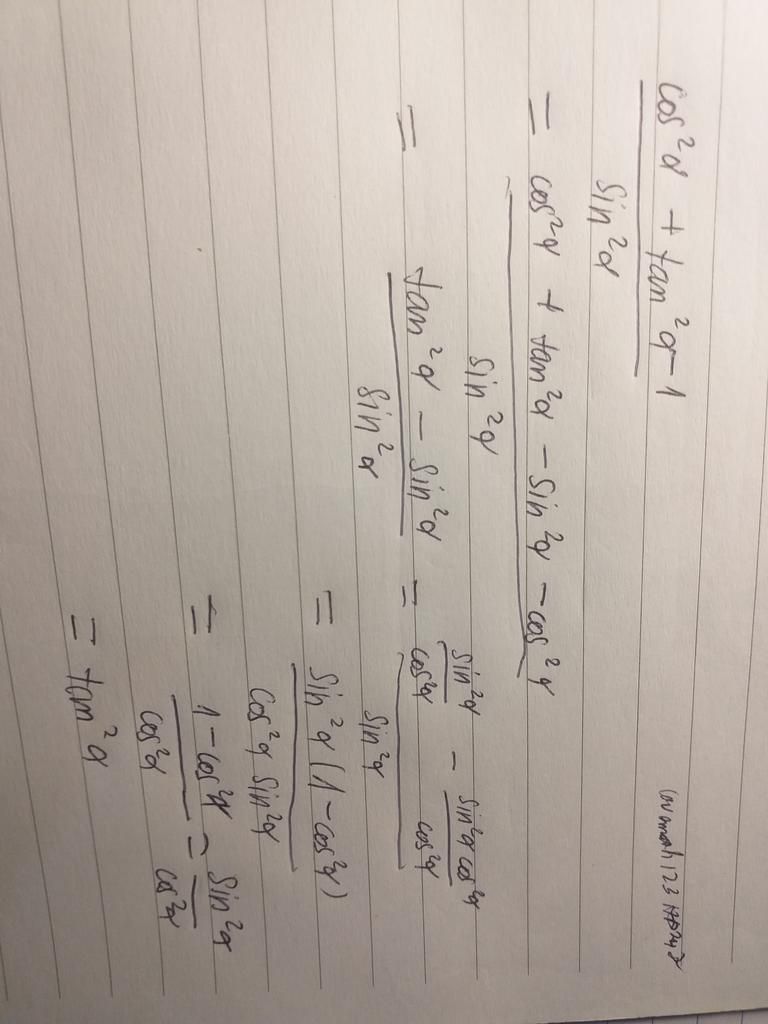 cos²α + tan²α - 1
sin²α
= cos²α + tan²α - sin²α - cos²α
sin²α
= tan²α - sin²α
sin²α
= sin²α/cos²α - sin²α cos²α/cos²α
sin²α
= sin²α (1 - cos²α)
cos²α sin²α
= 1 - cos²α = sin²α
cos²α cos²α
= tan²α